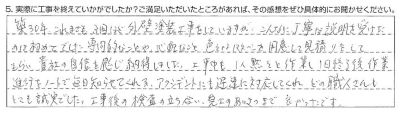 5. 実際に工事を終えていかがでしたか?ご満足いただいたところがあれば、その感想をぜひ具体的にお聞かせください。
築30年これまでも3回ほど外壁塗装工事をしていますが、こんなに丁寧な説明を受けた
のは初めてです。専門的なことや、心配なこと、色もたくさん
もらい貴社の自信を感じ納得しました。工事中も1人黙々と作業し1日終了後作業
進行をノートで毎日知らせてくれる。アクシデントにも迅速に対応してくれ、どの職人さんも
とても誠実でした。工事後の検査の立ち会い、完工のあいさつまで良かったです。